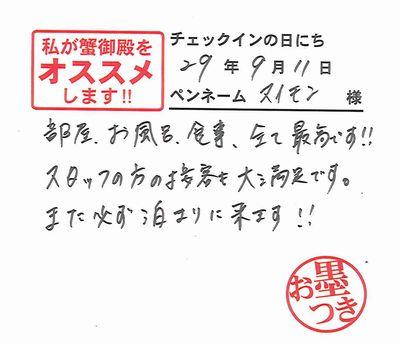 私が蟹御殿を
オススメ
します!!
チェックインの日にち
29年9月11日
ペンネーム スイモン 様
部屋、お風呂、食事、全て最高です!!
スタッフの方の接客も大満足です。
また必ず泊まりに来ます!!
お墨つき